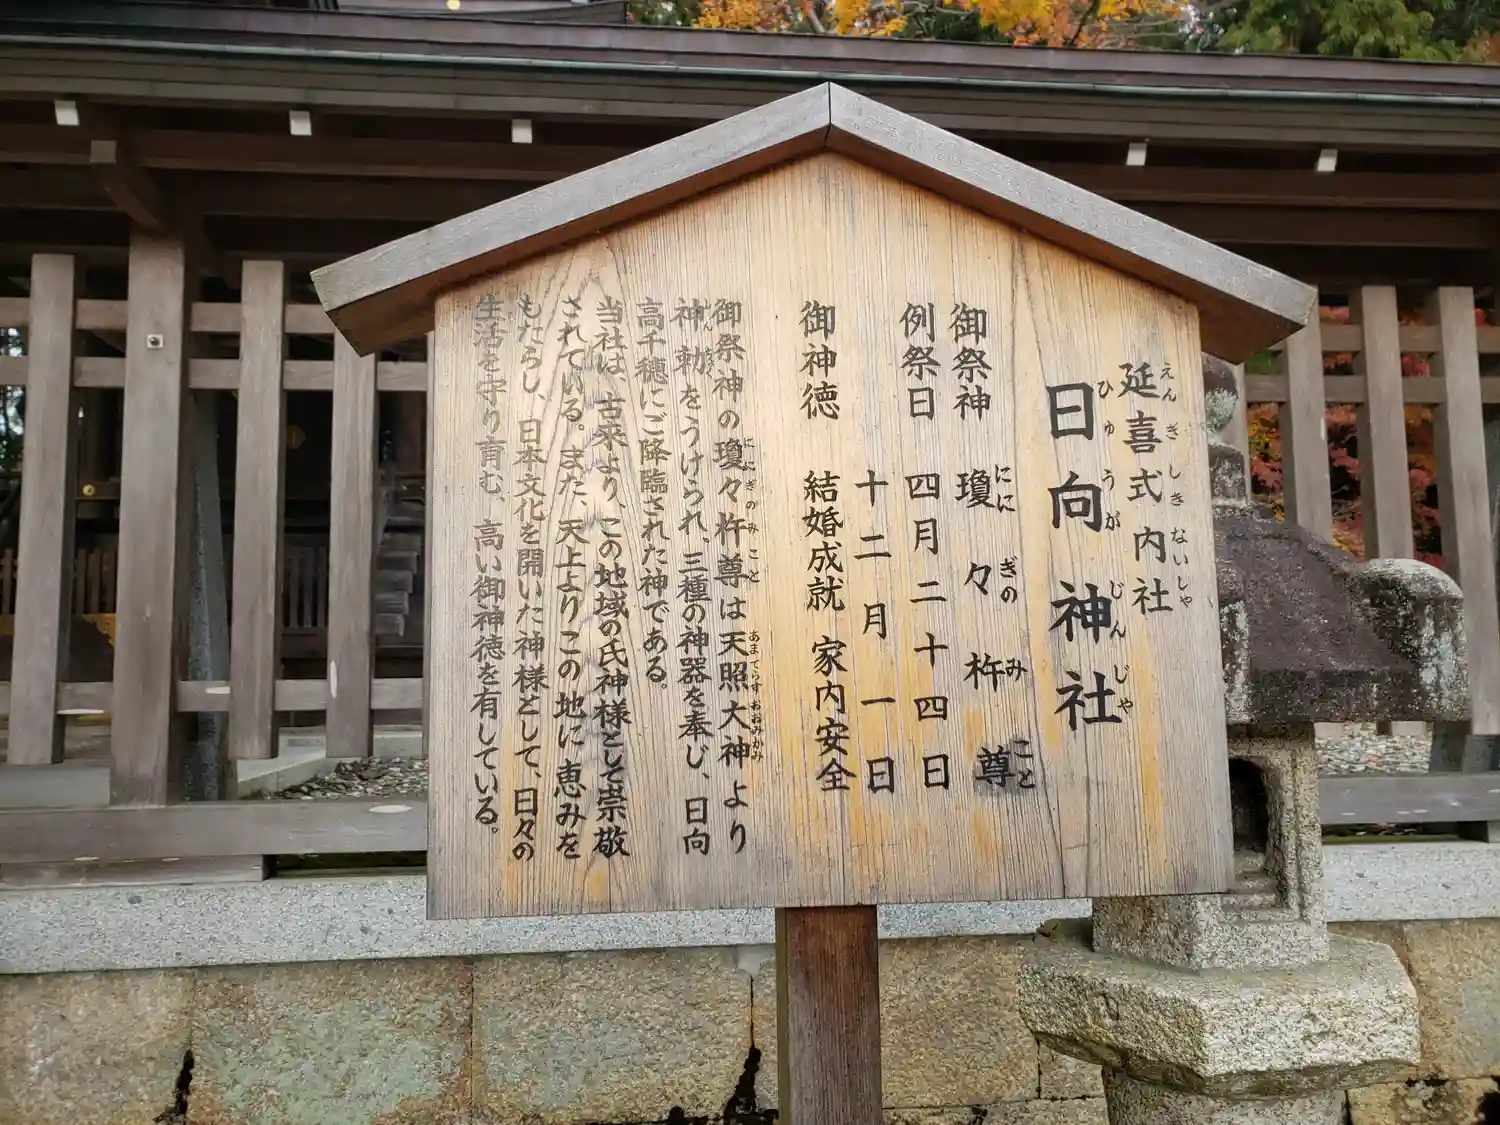 延喜式内社
えんぎしきないしゃ
日向神社
ひゅうがじんじゃ
御祭神 瓊々杵尊
ににぎのみこと
例祭日 四月二十四日
十二月一日
御神徳 結婚成就 家内安全
御祭神の瓊々杵尊は天照大神より
ににぎのみこと あまてらすおおみかみ
神勅をうけられ、三種の神器を奉じ、日向
しんちょく
高千穂にご降臨された神である。
当社は、古来より、この地域の氏神様として崇敬
されている。また、天上よりこの地に恵みを
もたらし、日本文化を開いた神様として、日々の
生活を守り育む、高い御神徳を有している。